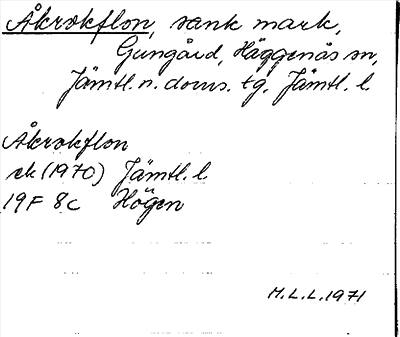 Åkrokflon, sank mark,
Gungård, Häggenås sn,
Jämtl. n. doms. tg, Jämtl. l.
Åkrokflon
ek (1970) Jämtl. l.
19F 8c Högen
M.L.L. 1971